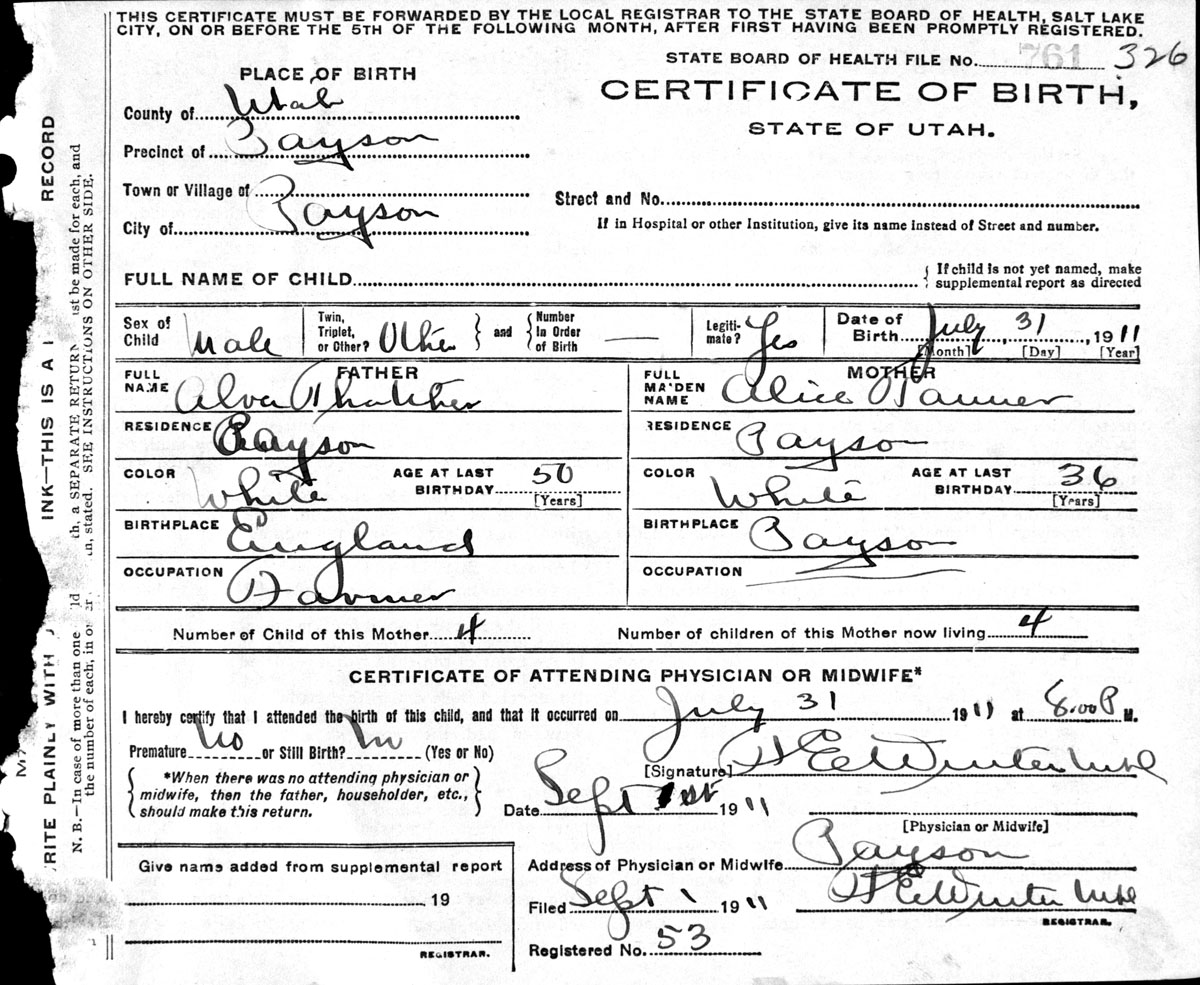 THIS CERTIFICATE MUST BE FORWARDED BY THE LOCAL REGISTRAR TO THE STATE BOARD OF HEALTH, SALT LAKE
CITY, ON OR BEFORE THE 5TH OF THE FOLLOWING MONTH, AFTER FIRST HAVING BEEN PROMPTLY REGISTERED.
STATE BOARD OF HEALTH FILE No. 761 326
PLACE OF BIRTH
CERTIFICATE OF BIRTH,
STATE OF UTAH.
County of Utah
Precinct of Payson
Town or Village of
City of Payson
Street and No.
If in Hospital or other Institution, give its name instead of Street and number.
FULL NAME OF CHILD
If child is not yet named, make
supplemental report as directed
Sex of Child Male
Twin, Triplet, or Other? Other and Number In Order of Birth —
Legiti-mate? Yes
Date of Birth July 31, 1911
[Month] [Day] [Year]
FATHER
FULL NAME Alva Thatcher
MOTHER
FULL MAIDEN NAME Alice Tanner
RESIDENCE Payson
RESIDENCE Payson
COLOR White AGE AT LAST BIRTHDAY 50 [Years]
COLOR White AGE AT LAST BIRTHDAY 36 [Years]
BIRTHPLACE England
BIRTHPLACE Payson
OCCUPATION Farmer
OCCUPATION
Number of Child of this Mother 4
Number of children of this Mother now living 4
CERTIFICATE OF ATTENDING PHYSICIAN OR MIDWIFE*
I hereby certify that I attended the birth of this child, and that it occurred on July 31 1911 at 8.00 P M.
Premature No or Still Birth? No (Yes or No)
*When there was no attending physician or
midwife, then the father, householder, etc.,
should make this return.
[Signature] Winter
Date Sept 1st 1911
[Physician or Midwife]
Give name added from supplemental report
19
REGISTRAR.
Address of Physician or Midwife Payson
Filed Sept 1 1911 Winter
REGISTRAR.
Registered No. 53
RITE PLAINLY WITH INK—THIS IS A RECORD
N. B.—In case of more than one a SEPARATE RETURN must be made for each, and
the number of each, in order stated. SEE INSTRUCTIONS ON OTHER SIDE.